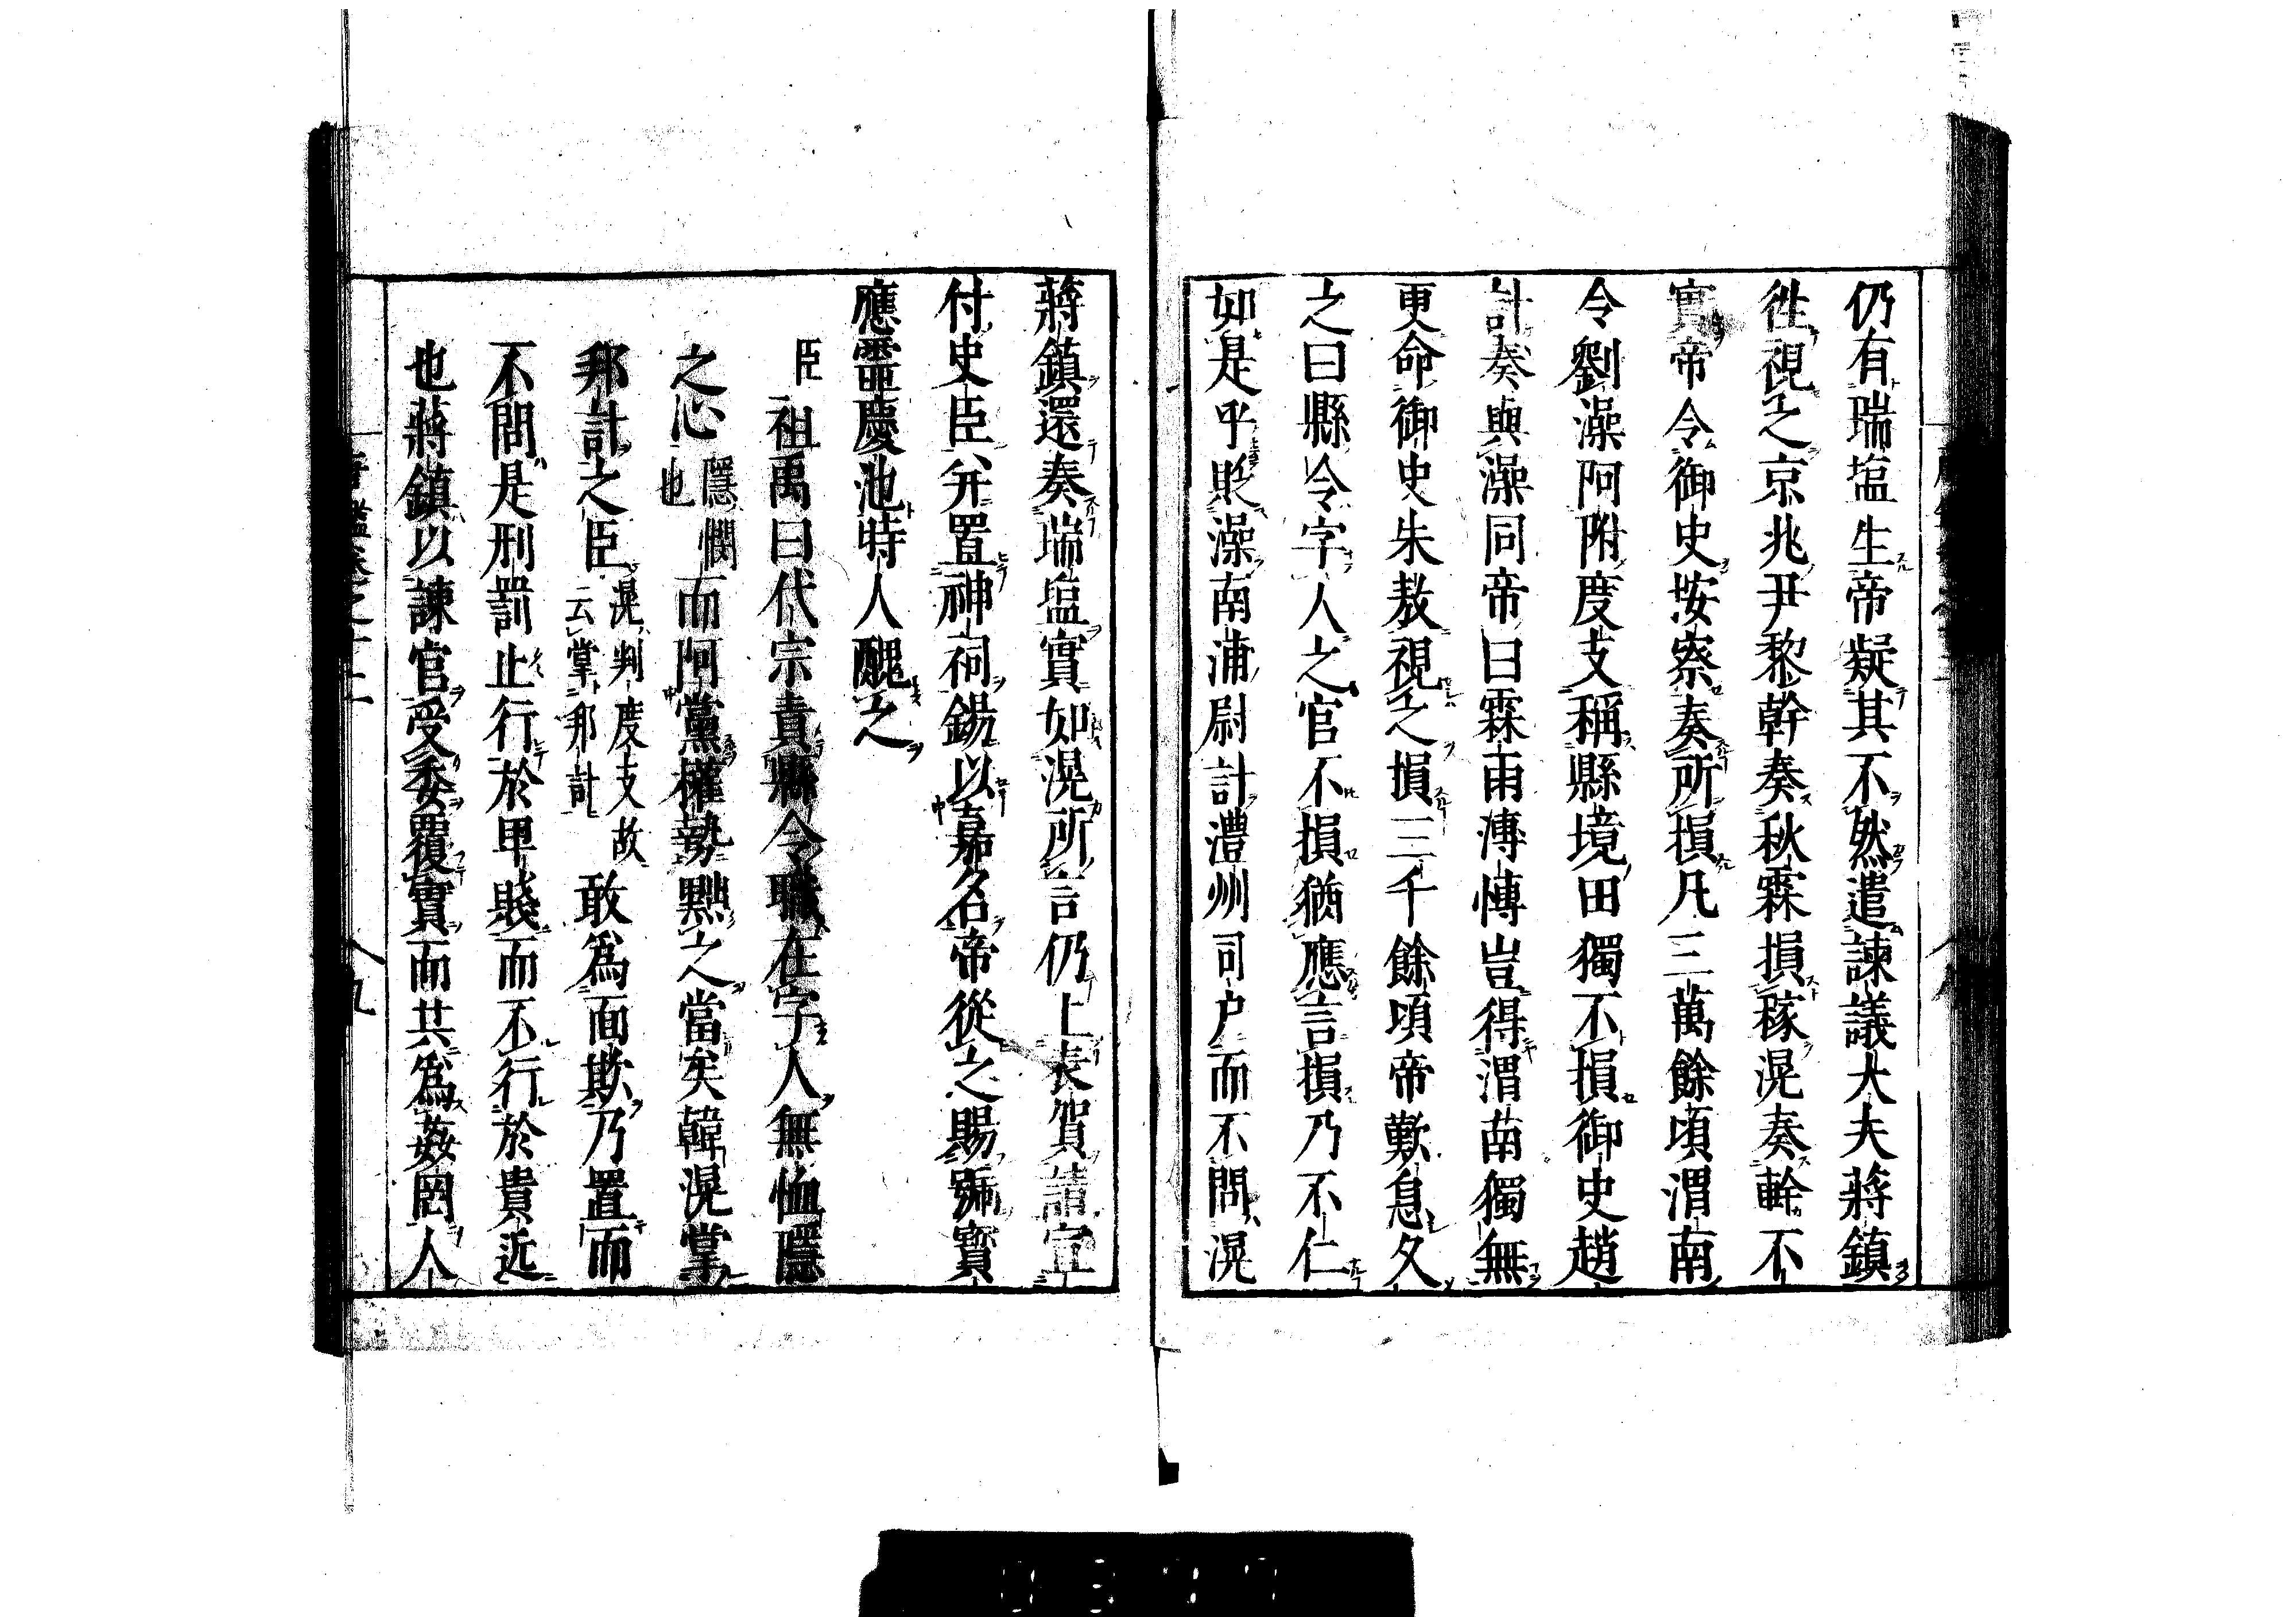 仍有瑞塩生帝疑其不然遣諫議大夫蔣鎮
徃視之京兆尹黎幹奏秋霖損稼滉奏幹不
實帝令御史按察奏所損凡三萬餘頃渭南
令劉澡阿附度支稱縣境田獨不損御史趙
計奏與澡同帝曰霖雨溥慱豈得渭南獨無
更命御史朱敖視之損三千餘頃帝歎息久
之曰縣令字人之官不損猶應言損乃不仁
如是乎貶澡南浦尉計澧州司户而不問滉
蔣鎮還奏瑞塩實如滉所言仍上表賀請宣
付史臣幷置神祠錫以嘉名帝從之賜號寳
應靈慶池時人醜之
臣祖禹曰代宗責縣令職在字人無恤隱
之心隱憫也而阿黨權勢黜之當矣韓滉掌
邦計之臣滉判度支故云掌邦計敢爲面欺乃置而
不問是刑罰止行於卑賤而不行於貴近
也蔣鎮以諫官受委覆實而共爲姦罔人